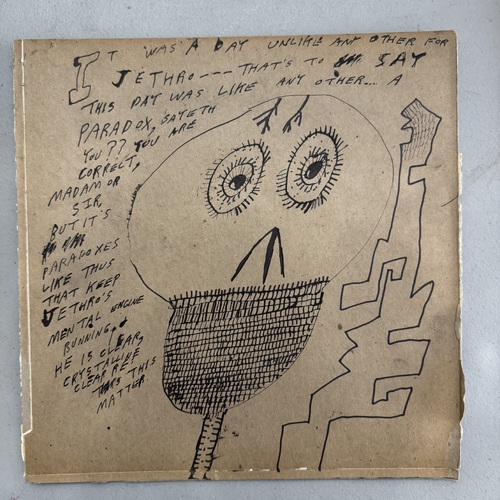 IT WAS A DAY UNLIKE ANY OTHER FOR
JETHRO --- THAT'S TO SAY
THIS DAY WAS LIKE ANY OTHER... A
PARADOX, SAYETH
YOU?? YOU ARE
CORRECT,
MADAM OR
SIR
BUT IT'S
PARADOXES
LIKE THUS
THAT KEEP
JETHRO'S
MENTAL ENGINE
RUNNING,
HE IS CLEAR,
CRYSTALLINE
CLEAR
THIS
MATTER